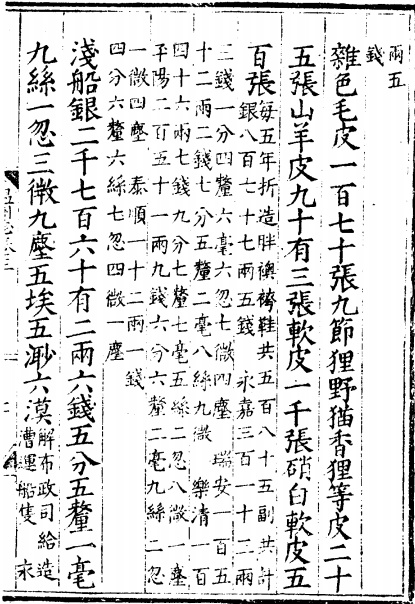 兩五
錢
雜色毛皮一百七十張九節狸野猫香狸等皮二十
五張山羊皮九十有三張軟皮一千張硝白軟皮五
百張每五年折造胖襖褲鞋共五百八十五副共計
銀八百七十七兩五錢 永嘉三百一十三兩
三錢一分四釐六毫六忽七微四塵 瑞安一百五
十二兩二錢七分五釐二毫八絲九微 樂清一百
四十六兩七錢九分七釐七毫五絲二忽八微一塵
平陽二百五十一兩九錢六分六釐二毫九絲二忽
一微四塵 泰順一十二兩一錢
四分六釐六絲七忽四微一塵
淺船銀二千七百六十有二兩六錢五分五釐一毫
九絲一忽三微九塵五埃五渺六漠解布政司給造
漕運船隻 永